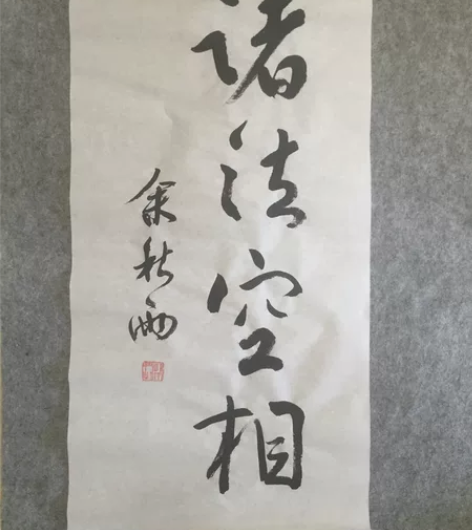 諸法空相
余秋雨